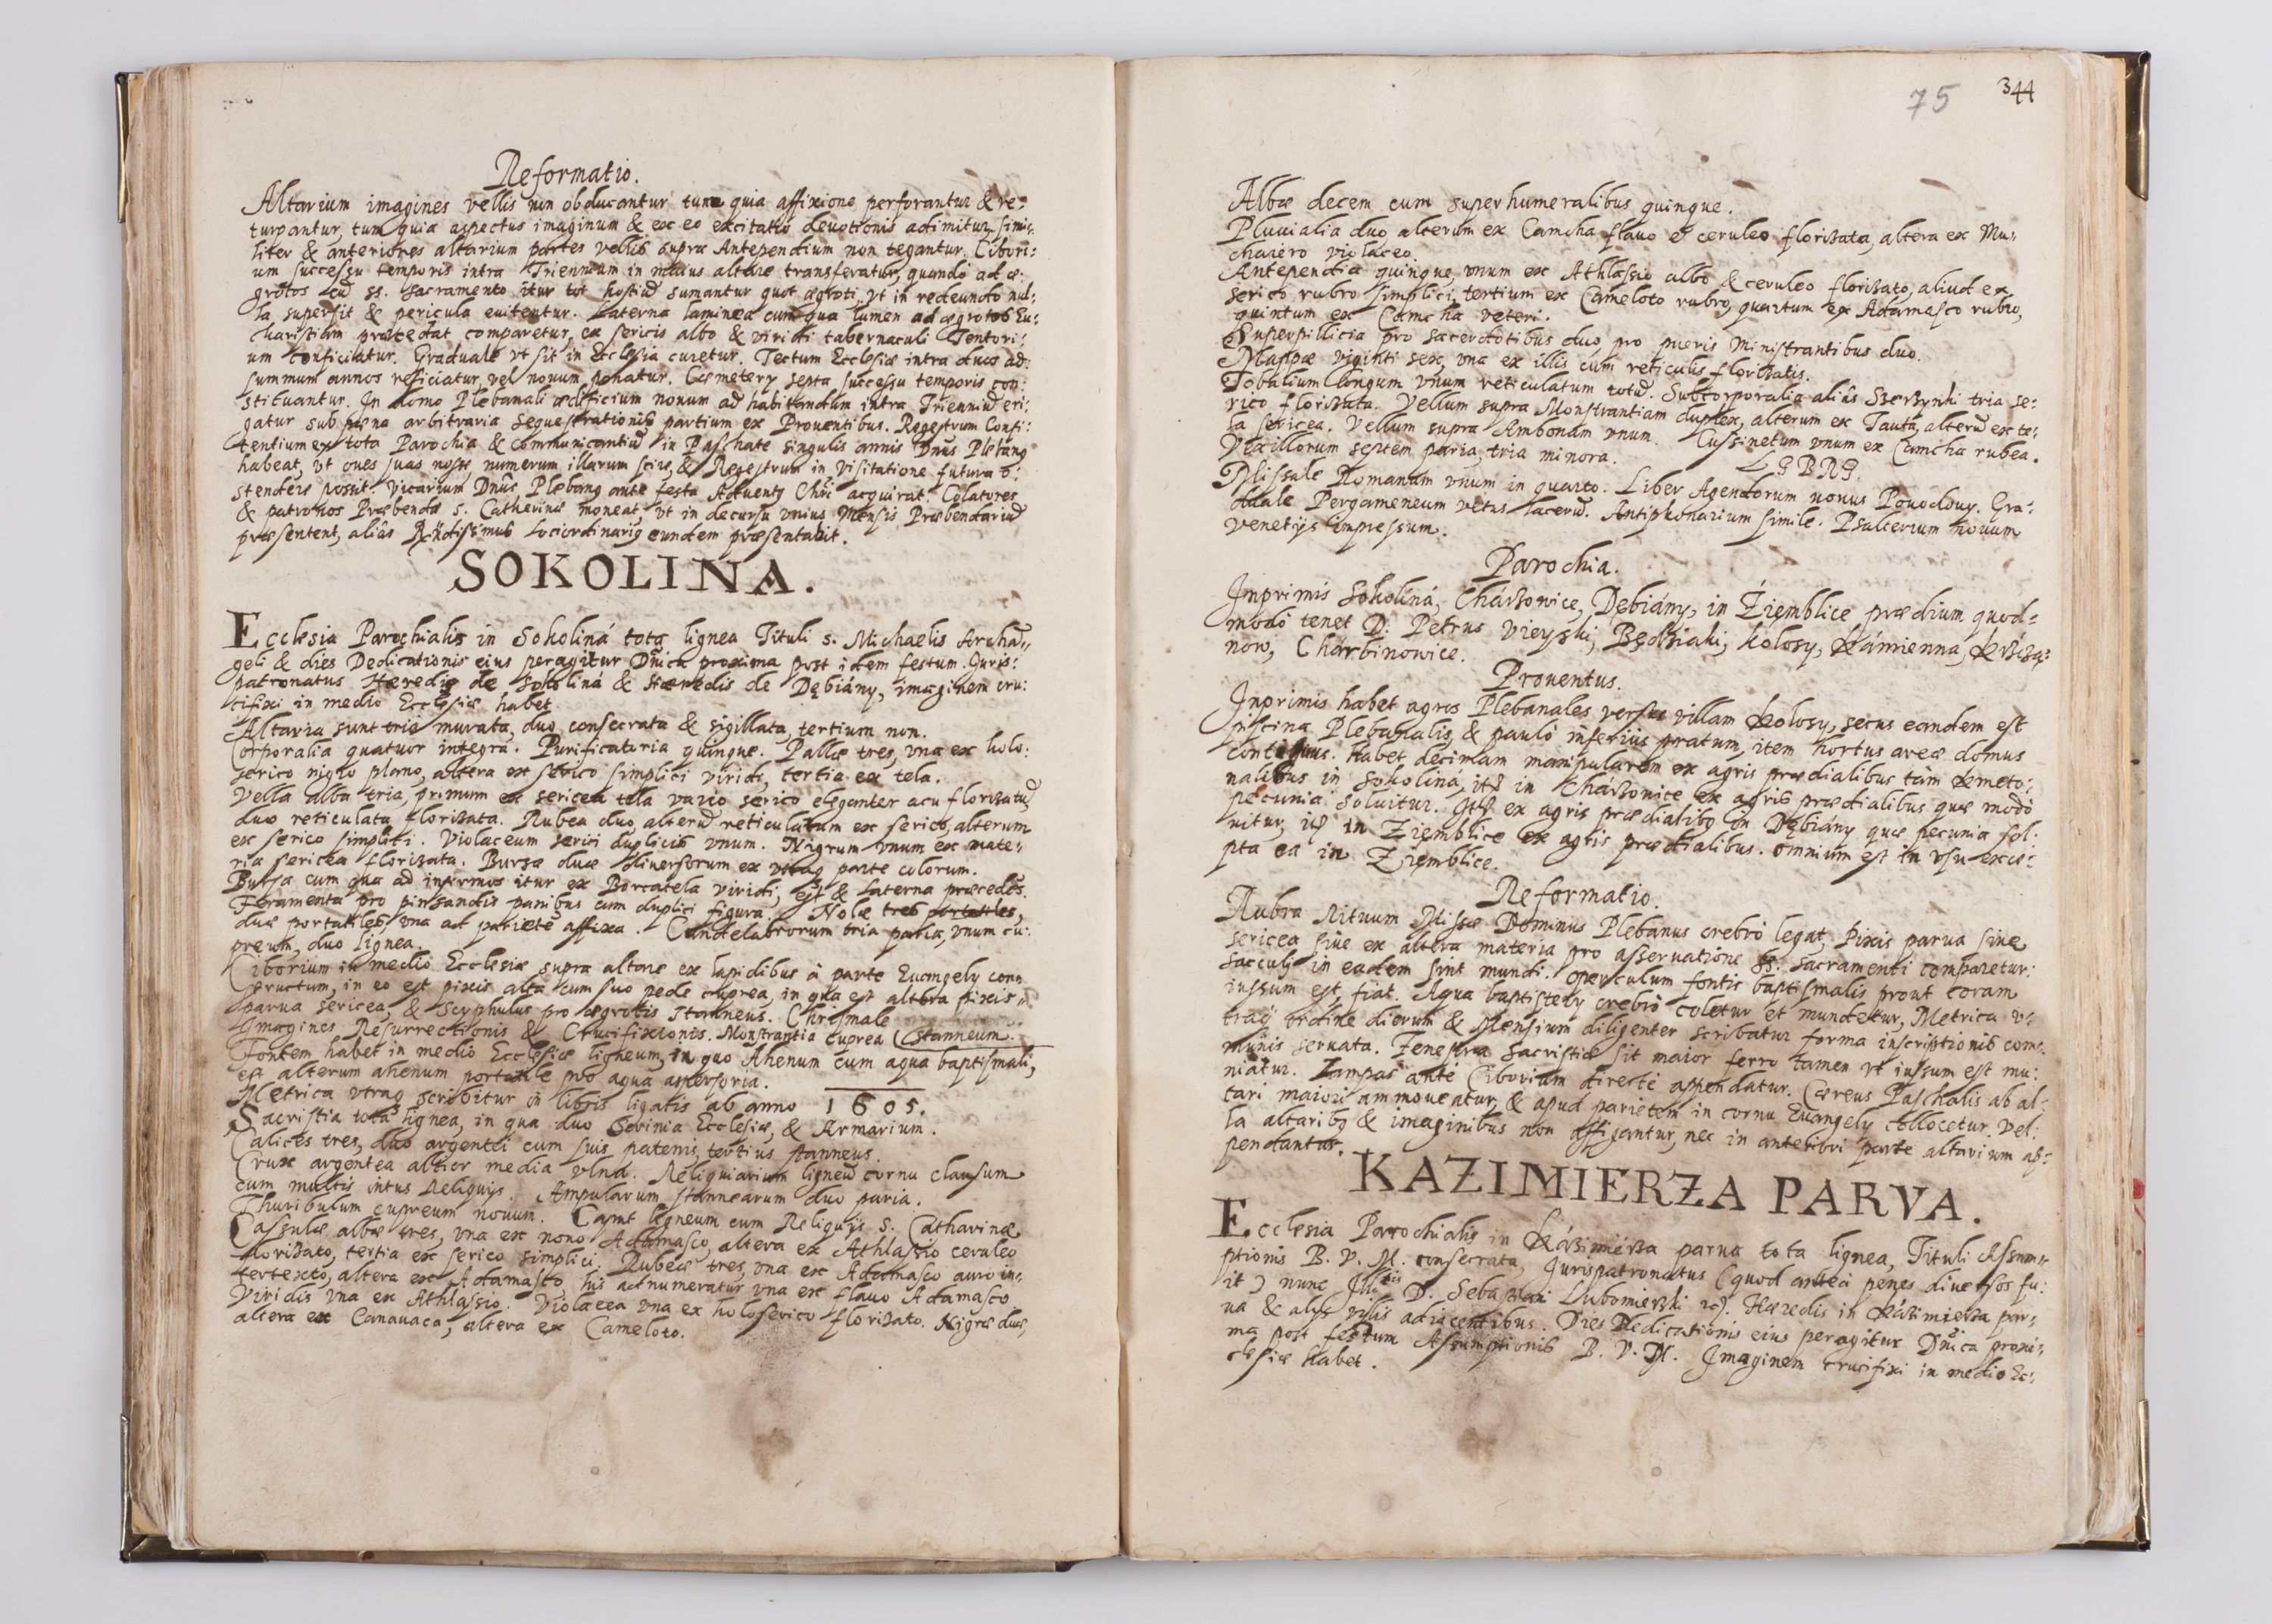 Reformatio.
Altarium imagines vellis non obducantur tum quia affixione perforantur & re:
turpantur, tum quia aspectus imaginum & ex eo excitatio deuotionis adimitur, simi:
liter & anteriores altarium partes vellis supra Antependium non tegantur. Cibori:
um successu temporis intra Triennium in maius altare transferatur, quando ad æ:
grotos cū SS. Sacramento itur tot hostiæ sumantur quot ægroti, vt in redeundo nul:
la supersit & pericula euitentur. Laterna laminea cum qua lumen ad ægrotos Eu:
charistiam præcedat comparetur, ex sericis albo & viridi tabernaculi Tentori:
um conficiatur. Graduale vt sit in Ecclesia curetur. Tectum Ecclesiæ intra duos ad:
summum annos reficiatur, vel nouum ponatur. Cæmetery septa successu temporis con:
stituantur. In domo Plebanali ædificium nouum ad habitandum intra Trienniū eri:
gatur sub pœna arbitraria sequestrationis partium ex Prouentibus. Regestrum Confi:
tentium ex tota Parochia & Communicantiū in Paschate singulis annis Dnus Plebang
habeat, vt oues suas nosse, numerum illarum scire, & Regestrum in visitatione futura o:
stendere possit. Vicarium Dnus Plebang ante festa Aduentg Chri acquirat. Colatores
& patronos Præbendæ S. Catherinæ moneat vt in decursu vnius Mensis Præbendariū
præsentent, aliâs Rndissimus Lociordinarig eundem præsentabit.
SOKOLINA.
Ecclesia Parochialis in Sokoliná tota lignea Tituli S. Michaelis Archā:
geli & dies Dedicationis eius peragitur Dnica proxima post idem festum. Juris:
patronatus Hæredis de Sokoliná & Hæredis de Dębiány, imaginem cru:
cifixi in medio Ecclesiæ habet
Altaria sunt tria murata, duo consecrata & sigillata, tertium non.
Corporalia quatuor integra. Purificatoria quinque. Pallæ tres, vna ex holo:
serico nigro plano, altera ex serico simplici viridi, tertia ex tela.
Vella alba tria, primum ex sericea tela vario serico eleganter acu florizatū,
duo reticulata florizata. Rubea duo, alterū reticulatum ex serico, alterum
ex serico simplici. Violaceum serici duplicis vnum. Nigrum vnum ex mate:
ria sericea florizata. Bursæ duæ diuersorum ex vtraq parte colorum.
Bursa cum qua ad infirmos itur ex Borcatela viridi, est & Laterna præcedēs.
Foramenta pro pinsandis panibus cum duplici figura. Nolæ tres portatiles,
duæ portatiles, vna ad parietē affixa. Candelabrorum tria paria, vnum cu:
preum, duo lignea.
Ciborium in medio Ecclesiæ supra altare ex lapidibus à parte Euangely con:
structum, in eo est pixis alta cum suo pede cuprea, in qua est altera pixis
parua sericea, & Scyphulus pro ægrotis Stanneus. Chrismale
Imagines Resurrectionis & Crucifixionis. Monstrantia cuprea (Stanneum.
Fontem habet in medio Ecclesiæ ligneum, in quo Ahenum cum aqua baptismali,
est alterum ahenum portatile pro aqua aspersoria.
Metrica vtraq scribitur in libris ligatis ab anno 1605.
Sacristia tota lignea, in qua duo Scrinia Ecclesiæ, & Armarium.
Calices tres, duo argentei cum suis patenis, tertius stanneus.
Crux argentea altior media vlna. Reliquiarium ligneū cornu clausum
cum multis intus Reliquijs. Ampularum stannearum duo paria.
Thuribulum cupreum nouum. Caput ligneum cum Reliquijs S. Catharinæ
Casulæ albæ tres, vna ex nono Adamasco, altera ex Athlassio ceruleo
florizato, tertia ex serico simplici. Rubeæ tres, vna ex Adamasco auro in:
tertexto, altera ex Adamasco, his adnumeratur vna ex flauo Adamasco
Viridis vna ex Athlassio. Violacea vna ex holoserico florizato. Nigræ duæ,
altera ex Canauaca, altera ex Cameloto.
75 344
Albæ decem cum superhumeralibus quinque.
Pluuialia duo alterum ex Camcha flauo & ceruleo florizata, altera ex Mu:
chaiero violaceo.
Antependia quinque vnum ex Athlassio albo & ceruleo florizato, aliud ex
serico rubro simplici, tertium ex Cameloto rubro, quartum ex Adamasco rubro,
quintum ex Camcha veteri.
Superpillicia pro sacerdotibus duo, pro pueris Ministrantibus duo.
Mappæ viginti sex, vna ex illis cum reticulis florizatis.
Tobalium longum vnum reticulatum totū. Subcorporalia aliâs Szerzynki tria se:
rico florizata. Vellum supra Monstrantiam duplex, alterum ex Tauta, alterū ex te:
la sericea. Vellum supra Ambonam vnum. Cussinetum vnum ex Camcha rubea.
Vexillorum septem paria, tria minora.
LIBRI.
Missale Romanum vnum in quarto. Liber Agendorum nouus Powodowy. Gra:
duale Pergameneum vetus lacerū. Antiphonarium simile. Psalterium nouum
Venetijs impressum.
Parochia.
Imprimis Sokoliná, Chárzowice, Dębiány, in Ziemblice prædium quod:
modo tenet D. Petrus Vieyski, Będziaki, Kolosy, Kámienna, Krzcza:
now, Chárbinowice.
Prouentus.
Inprimis habet agros Plebanales versus villam Kolosy, secus eandem est
piscina Plebanalis, & pauló inferius pratum, item hortus areæ domus
contiguus. Habet decimam manipularem ex agris prædialibus tàm Kmeto:
nalibus in Sokoliná, itē in Chárzowice ex agris prædialibus quæ modò
pecunia soluitur. Itē ex agris prædialibg in Dębiány quæ pecunia sol:
uitur, itē in Ziemblice ex agris prædialibus. Omnium est in vsu exce:
pta ea in Ziemblice.
Reformatio.
Rubra Rituum Missæ Dominus Plebanus crebrò legat, Pixis parua siue
sericea siue ex altera materia pro asseruatione SS. Sacramenti comparetur:
Sacculi in eadem sint mundi. Operculum fontis baptismalis prout coram
iussum est, fiat. Aqua baptistery crebrò coletur et mundetur, Metrica v:
traq ordine dierum & Mensium diligenter scribatur forma inscriptionis com:
munis seruata. Fenestra Sacristiæ sit maior ferro tamen vt iussum est mu:
niatur. Lampas ante Ciborium directè appendatur. Cæreus Paschalis ab al:
tari maiori ammoueatur, & apud parietem in cornu Euangely collocetur. Vel:
la altaribg & imaginibus non affigantur, nec in anteriori parte altarium ap:
pendantur.
KAZIMIERZA PARVA.
Ecclesia Parochialis in Kázimiérza parua tota lignea, Tituli Assum:
ptionis B. V. M. consecrata, Jurispatronatus (quod anteà penes diuersos fu:
it) nunc Illtris D. Sebastiani Lubomierski &c. Hæredis in Kázimierza par:
ua & alys villis adiacentibus. Dies Dedicationis eius peragitur Dnica proxi:
ma post festum Assumptionis B. V. M. Imaginem crucifixi in medio Ec:
clesiæ habet.